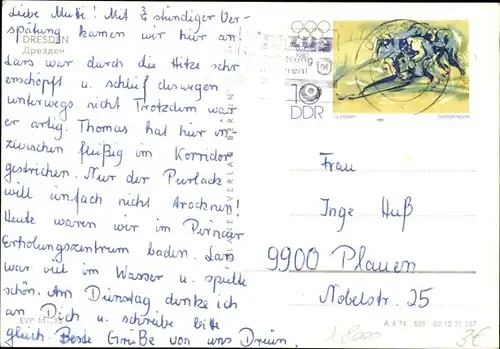 Liebe Mutti! Mit ¾ stündiger Ver-
spätung kamen wir hier an!
DRESDEN
Дрезден
Lars war durch die Hitze sehr
erschöpft u. schlief deswegen
unterwegs nicht Trotzdem war
er artig. Thomas hat hier in
zwischen fleißig im Korridor
gestrichen. Nur der Purlack
will einfach nicht trocknen!
Heute waren wir im Pirnaer
Erholungszentrum baden. Lars
war viel im Wasser u. spielte
schön. Am Dienstag denke ich
an Dich u. schreibe bitte
gleich. Beste Grüße von uns Drein.
EVP M
PLANET-VERLAG BERLIN
10
DDR
Frau
Inge Huß
9900 Plauen
Nobelstr. 25
A 4 74 605 02 12 31 107
3€